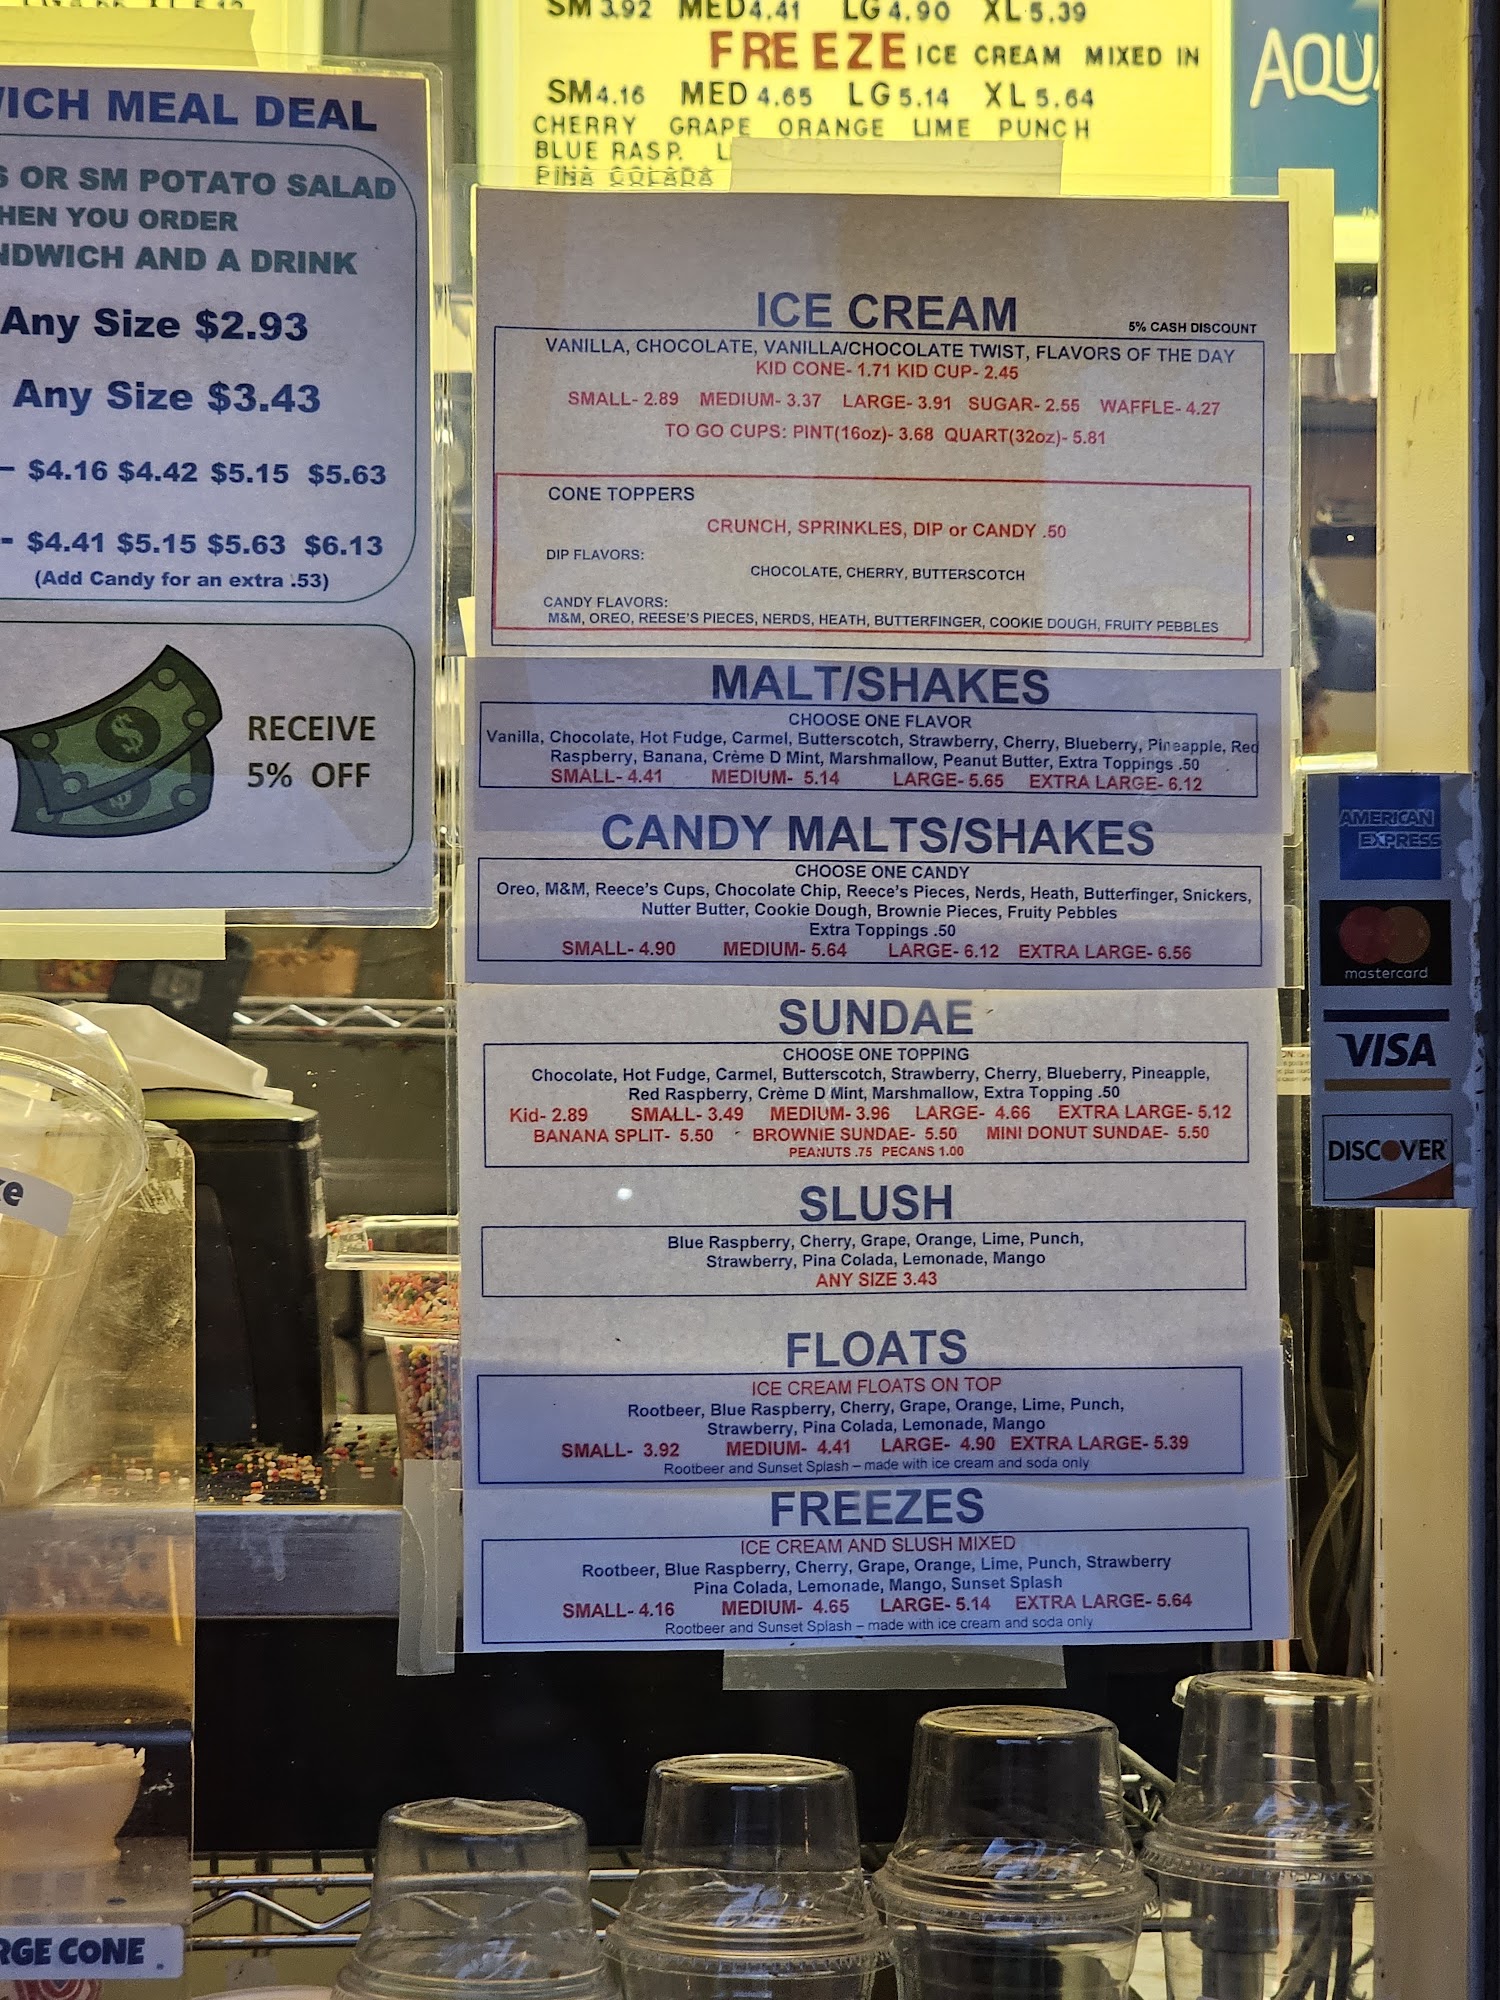 SM 3.92 MED 4.41 LG 4.90 XL 5.39
FREEZE ICE CREAM MIXED IN
SM 4.16 MED 4.65 LG 5.14 XL 5.64
CHERRY GRAPE ORANGE LIME PUNCH
BLUE RASP.
PINA COLADA
AQU
MEAL DEAL
OR SM POTATO SALAD
YOU ORDER
AND A DRINK
Any Size $2.93
Any Size $3.43
– $4.16 $4.42 $5.15 $5.63
- $4.41 $5.15 $5.63 $6.13
(Add Candy for an extra .53)
RECEIVE
5% OFF
ICE CREAM
5% CASH DISCOUNT
VANILLA, CHOCOLATE, VANILLA/CHOCOLATE TWIST, FLAVORS OF THE DAY
KID CONE- 1.71 KID CUP- 2.45
SMALL- 2.89 MEDIUM- 3.37 LARGE- 3.91 SUGAR- 2.55 WAFFLE- 4.27
TO GO CUPS: PINT(16oz)- 3.68 QUART(32oz)- 5.81
CONE TOPPERS
CRUNCH, SPRINKLES, DIP or CANDY .50
DIP FLAVORS:
CHOCOLATE, CHERRY, BUTTERSCOTCH
CANDY FLAVORS:
M&M, OREO, REESE'S PIECES, NERDS, HEATH, BUTTERFINGER, COOKIE DOUGH, FRUITY PEBBLES
MALT/SHAKES
CHOOSE ONE FLAVOR
Vanilla, Chocolate, Hot Fudge, Carmel, Butterscotch, Strawberry, Cherry, Blueberry, Pineapple, Red
Raspberry, Banana, Crème D Mint, Marshmallow, Peanut Butter, Extra Toppings .50
SMALL- 4.41 MEDIUM- 5.14 LARGE- 5.65 EXTRA LARGE- 6.12
CANDY MALTS/SHAKES
CHOOSE ONE CANDY
Oreo, M&M, Reece's Cups, Chocolate Chip, Reece's Pieces, Nerds, Heath, Butterfinger, Snickers,
Nutter Butter, Cookie Dough, Brownie Pieces, Fruity Pebbles
Extra Toppings .50
SMALL- 4.90 MEDIUM- 5.64 LARGE- 6.12 EXTRA LARGE- 6.56
SUNDAE
CHOOSE ONE TOPPING
Chocolate, Hot Fudge, Carmel, Butterscotch, Strawberry, Cherry, Blueberry, Pineapple,
Red Raspberry, Crème D Mint, Marshmallow, Extra Topping .50
Kid- 2.89 SMALL- 3.49 MEDIUM- 3.96 LARGE- 4.66 EXTRA LARGE- 5.12
BANANA SPLIT- 5.50 BROWNIE SUNDAE- 5.50 MINI DONUT SUNDAE- 5.50
PEANUTS .75 PECANS 1.00
SLUSH
Blue Raspberry, Cherry, Grape, Orange, Lime, Punch,
Strawberry, Pina Colada, Lemonade, Mango
ANY SIZE 3.43
FLOATS
ICE CREAM FLOATS ON TOP
Rootbeer, Blue Raspberry, Cherry, Grape, Orange, Lime, Punch,
Strawberry, Pina Colada, Lemonade, Mango
SMALL- 3.92 MEDIUM- 4.41 LARGE- 4.90 EXTRA LARGE- 5.39
Rootbeer and Sunset Splash – made with ice cream and soda only
FREEZES
ICE CREAM AND SLUSH MIXED
Rootbeer, Blue Raspberry, Cherry, Grape, Orange, Lime, Punch, Strawberry
Pina Colada, Lemonade, Mango, Sunset Splash
SMALL- 4.16 MEDIUM- 4.65 LARGE- 5.14 EXTRA LARGE- 5.64
Rootbeer and Sunset Splash – made with ice cream and soda only
AMERICAN
EXPRESS
mastercard
VISA
DISCOVER
CONE